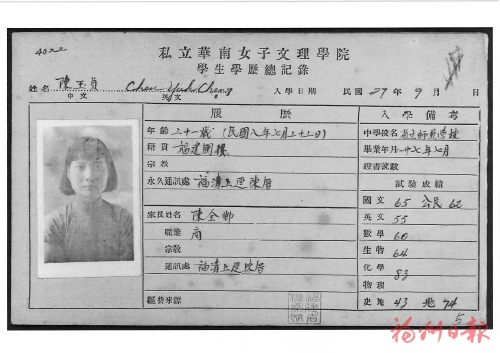 4022
私立華南女子文理學院
學生學歷總記錄
姓名 陳玉貞 Chen Yuh Cheng 入學日期 民國 27 年 9 月 日
中文 英文
履歷 入學備考
年齡 二十一歲 (民國八年七月二十二日) 中學校名
籍貫 福建閩侯 畢業年月 廿七年七月
宗教 證書號數
永久通訊處 福清 陳厝 試驗成績
國文 65 公民 62
家長姓名 陳全 英文 55
職業 商 數學 60
宗教 生物 64
通訊處 福清 陳厝 化學 83
物理
經費來源 史地 43 地 74
5
福州日报